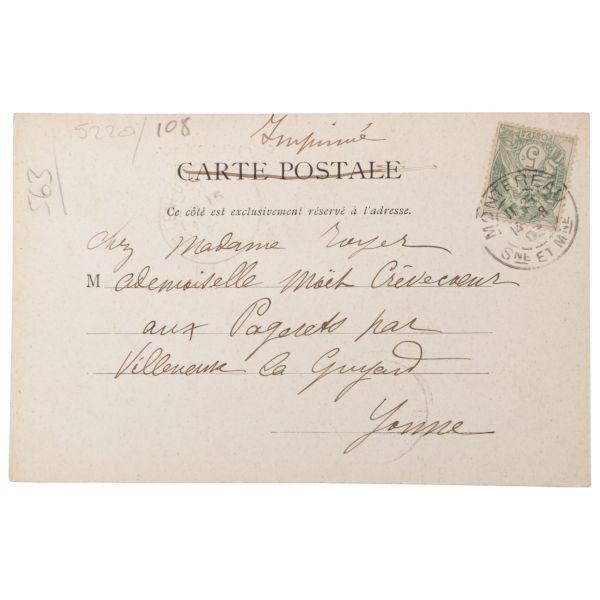 5220/108
563/
Imprimé
CARTE POSTALE
Ce côté est exclusivement réservé à l'adresse.
chez Madame Royer
Mademoiselle Moët Crèvecoeur
aux Pagerets par
Villeneuve la Guyard
Yonne
MONTEREAU
SNE ET MNE
5